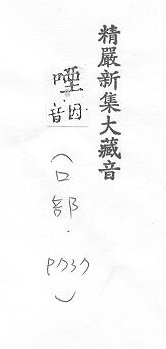 精嚴新集大藏音
音因
（口部．P737）